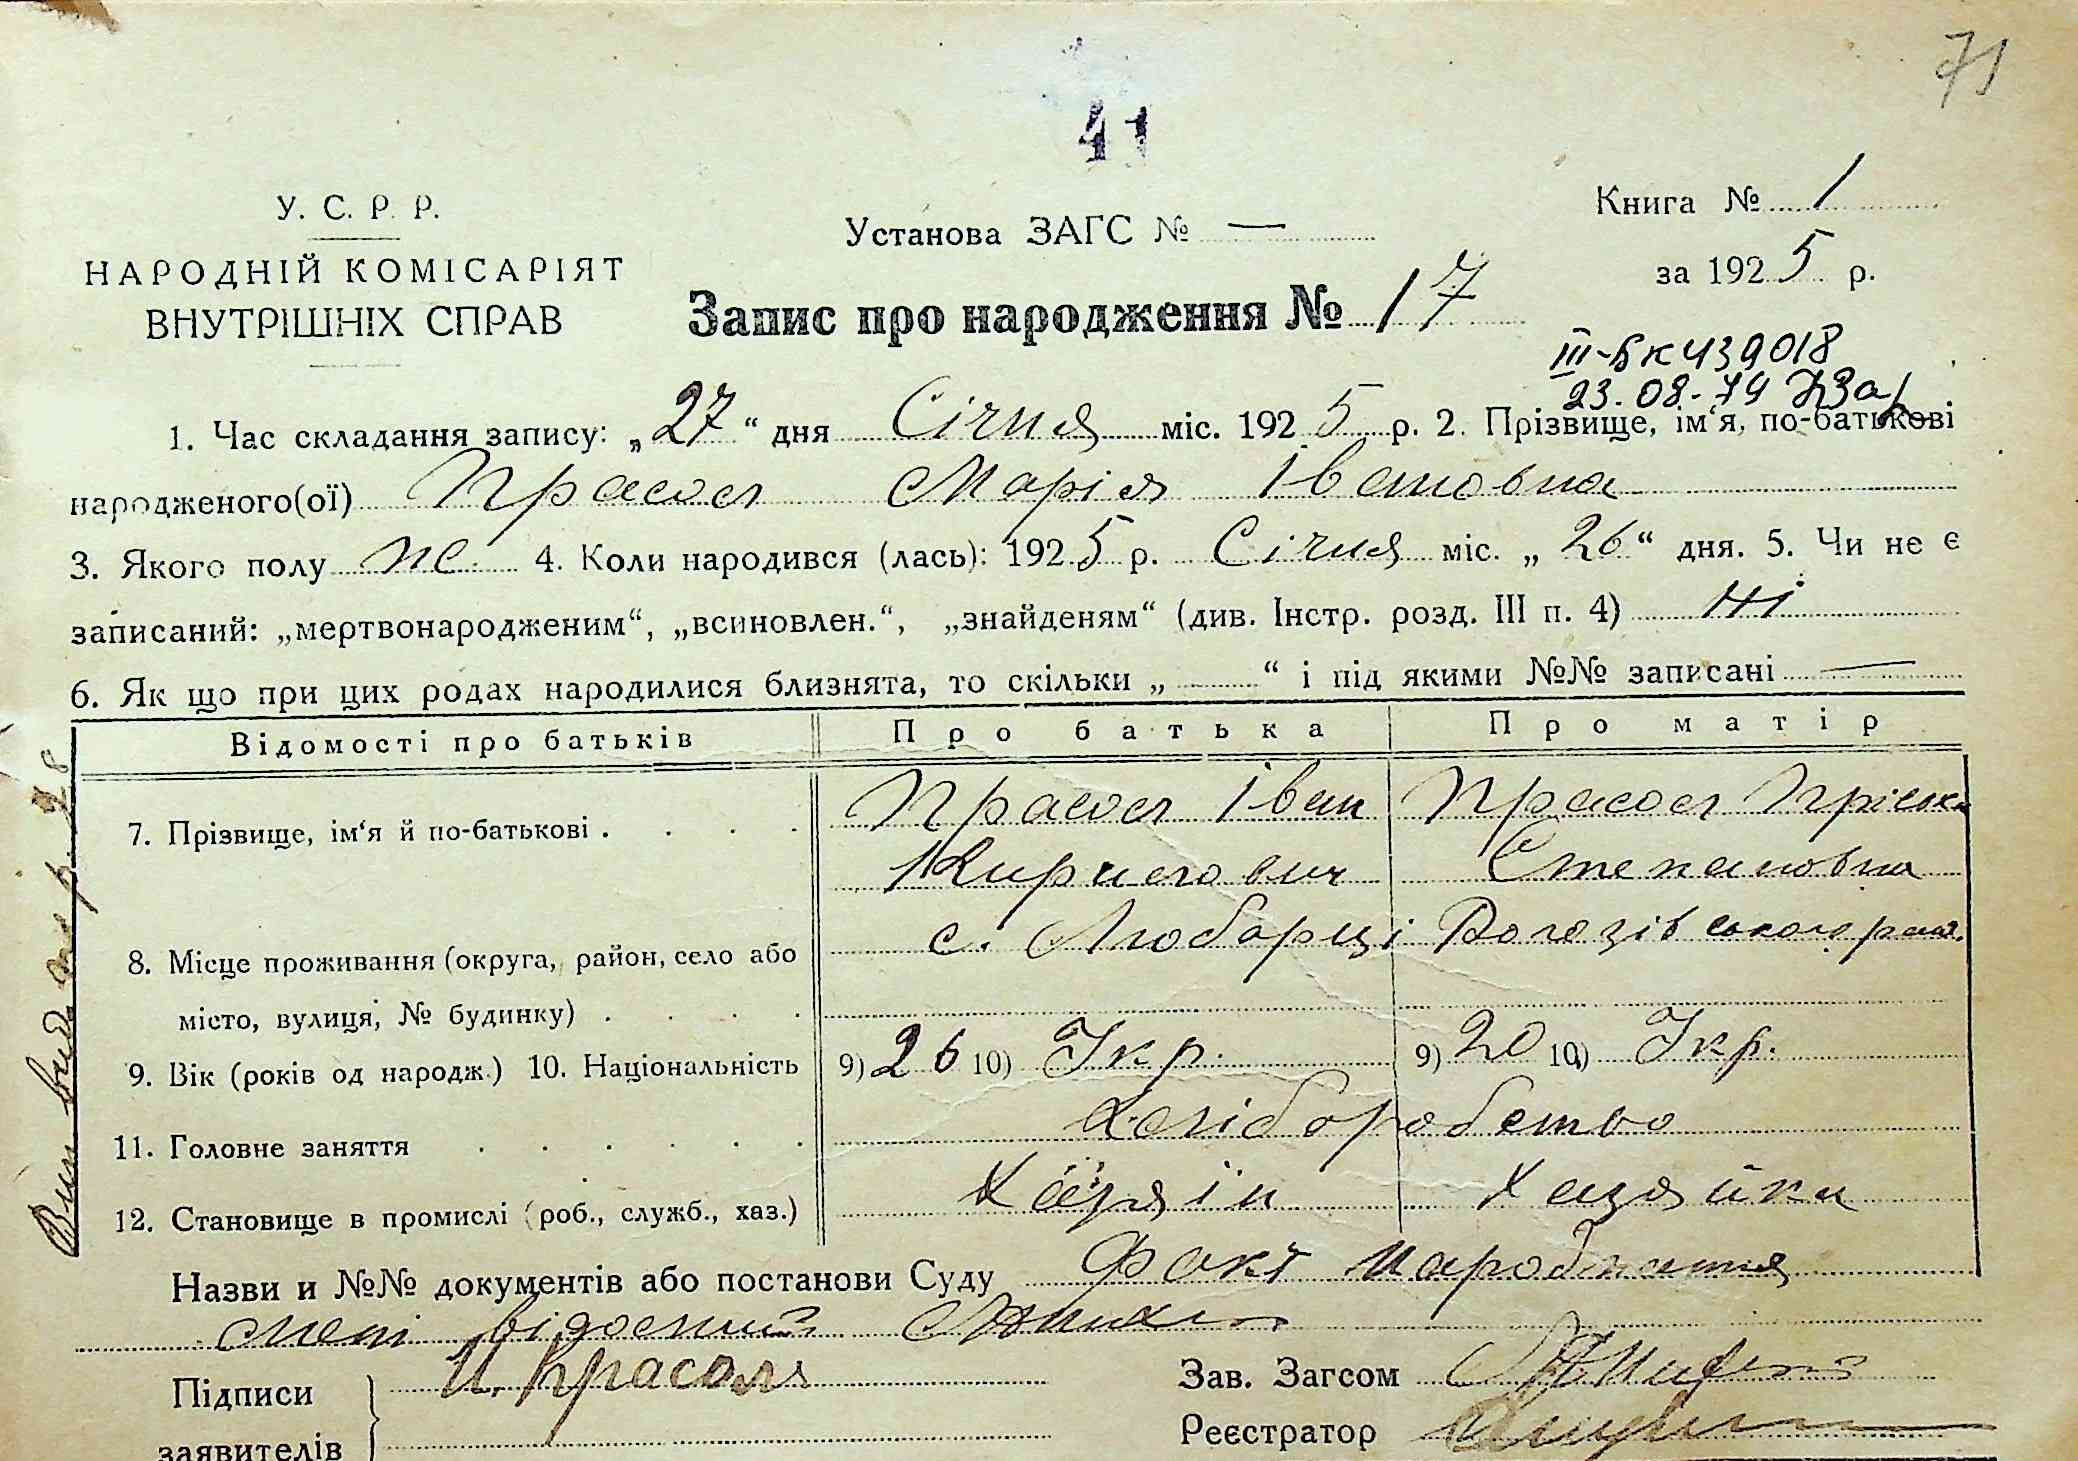 71
41
У. С. Р. Р.
НАРОДНІЙ КОМІСАРІЯТ
ВНУТРІШНІХ СПРАВ
Установа ЗАГС № —
Книга № 1
за 1925 р.
Запис про народження № 17
III-БК 439018
23.08.74
1. Час складання запису: „27“ дня Січня міс. 1925 р. 2. Прізвище, ім‘я, по-батькові
народженого(ої) Прасол Марія Івановна
3. Якого полу ж. 4. Коли народився (лась): 1925 р. Січня міс. „26“ дня. 5. Чи не є
записаний: „мертвонародженим“, „всиновлен.“, „знайденям“ (див. Інстр. розд. III п. 4) Ні
6. Як що при цих родах народилися близнята, то скільки „ “ і під якими №№ записані —
Відомості про батьків Про батька Про матір
7. Прізвище, ім‘я й по-батькові . . . . Прасол Іван Прасол Пріська
Кирилович Степановна
8. Місце проживання (округа, район, село або с. Любарці Рогозівського рай.
місто, вулиця, № будинку) . . . .
9. Вік (років од народж.) 10. Національність 9) 26 10) Укр. 9) 20 10) Укр.
11. Головне заняття . . . . . . Хліборобство
12. Становище в промислі (роб., служб., хаз.) Хазяїн Хазяйка
Назви и №№ документів або постанови Суду Факт народження
мені відомий
Підписи И. Прасол
заявителів
Зав. Загсом
Реєстратор